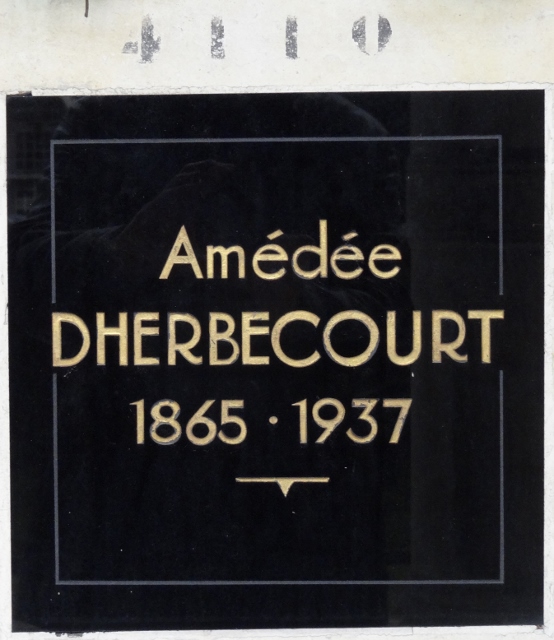 4110
Amédée
DHERBECOURT
1865 · 1937